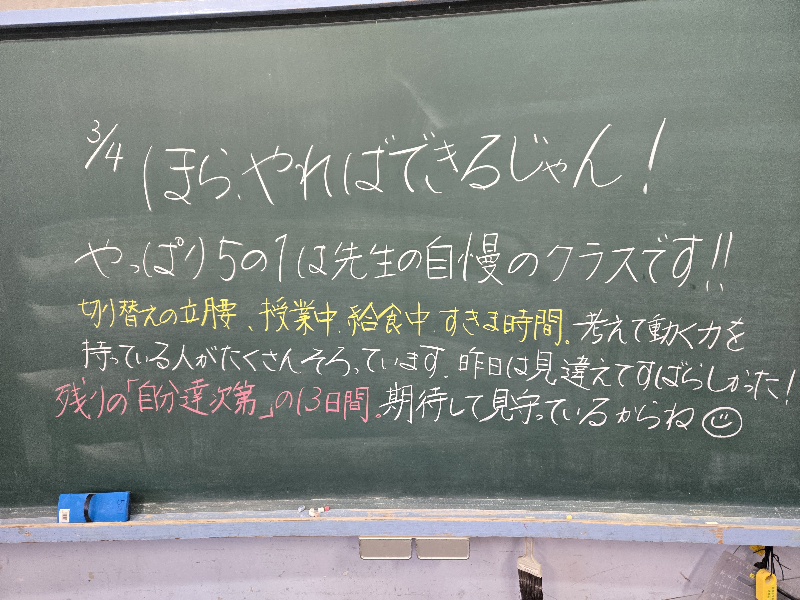 3/4 ほら、やればできるじゃん!
やっぱり5の1は先生の自慢のクラスです!!
切り替えの立腰、授業中、給食中、すきま時間。考えて動く力を
持っている人がたくさんそろっています。昨日は見違えてすばらしかった!
残りの「自分達次第」の13日間。期待して見守っているからね☺